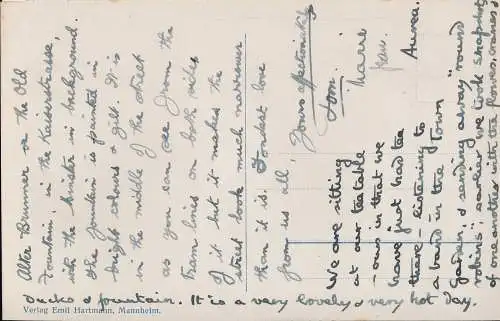 Alter Brunner or the Old
Fountain, in the Kaiserstrasse,
with the Minster in background.
The fountain is painted in
bright colours & gilt. It is
in the middle of the street
as you can see from the
tram lines on both sides
of it but it makes the
street look much narrower
than it is. Fondest love
from us all,
Yours affectionately
We are sitting
at our tea table
- ours in that we
have just had tea
there - listening to
a band in the Town
Garden, & sending away "round
robins" earlier we took snapshots
of one another with the flowers, cranes &
ducks & fountain. It is a very lovely & very hot day.
Verlag Emil Hartmann, Mannheim.